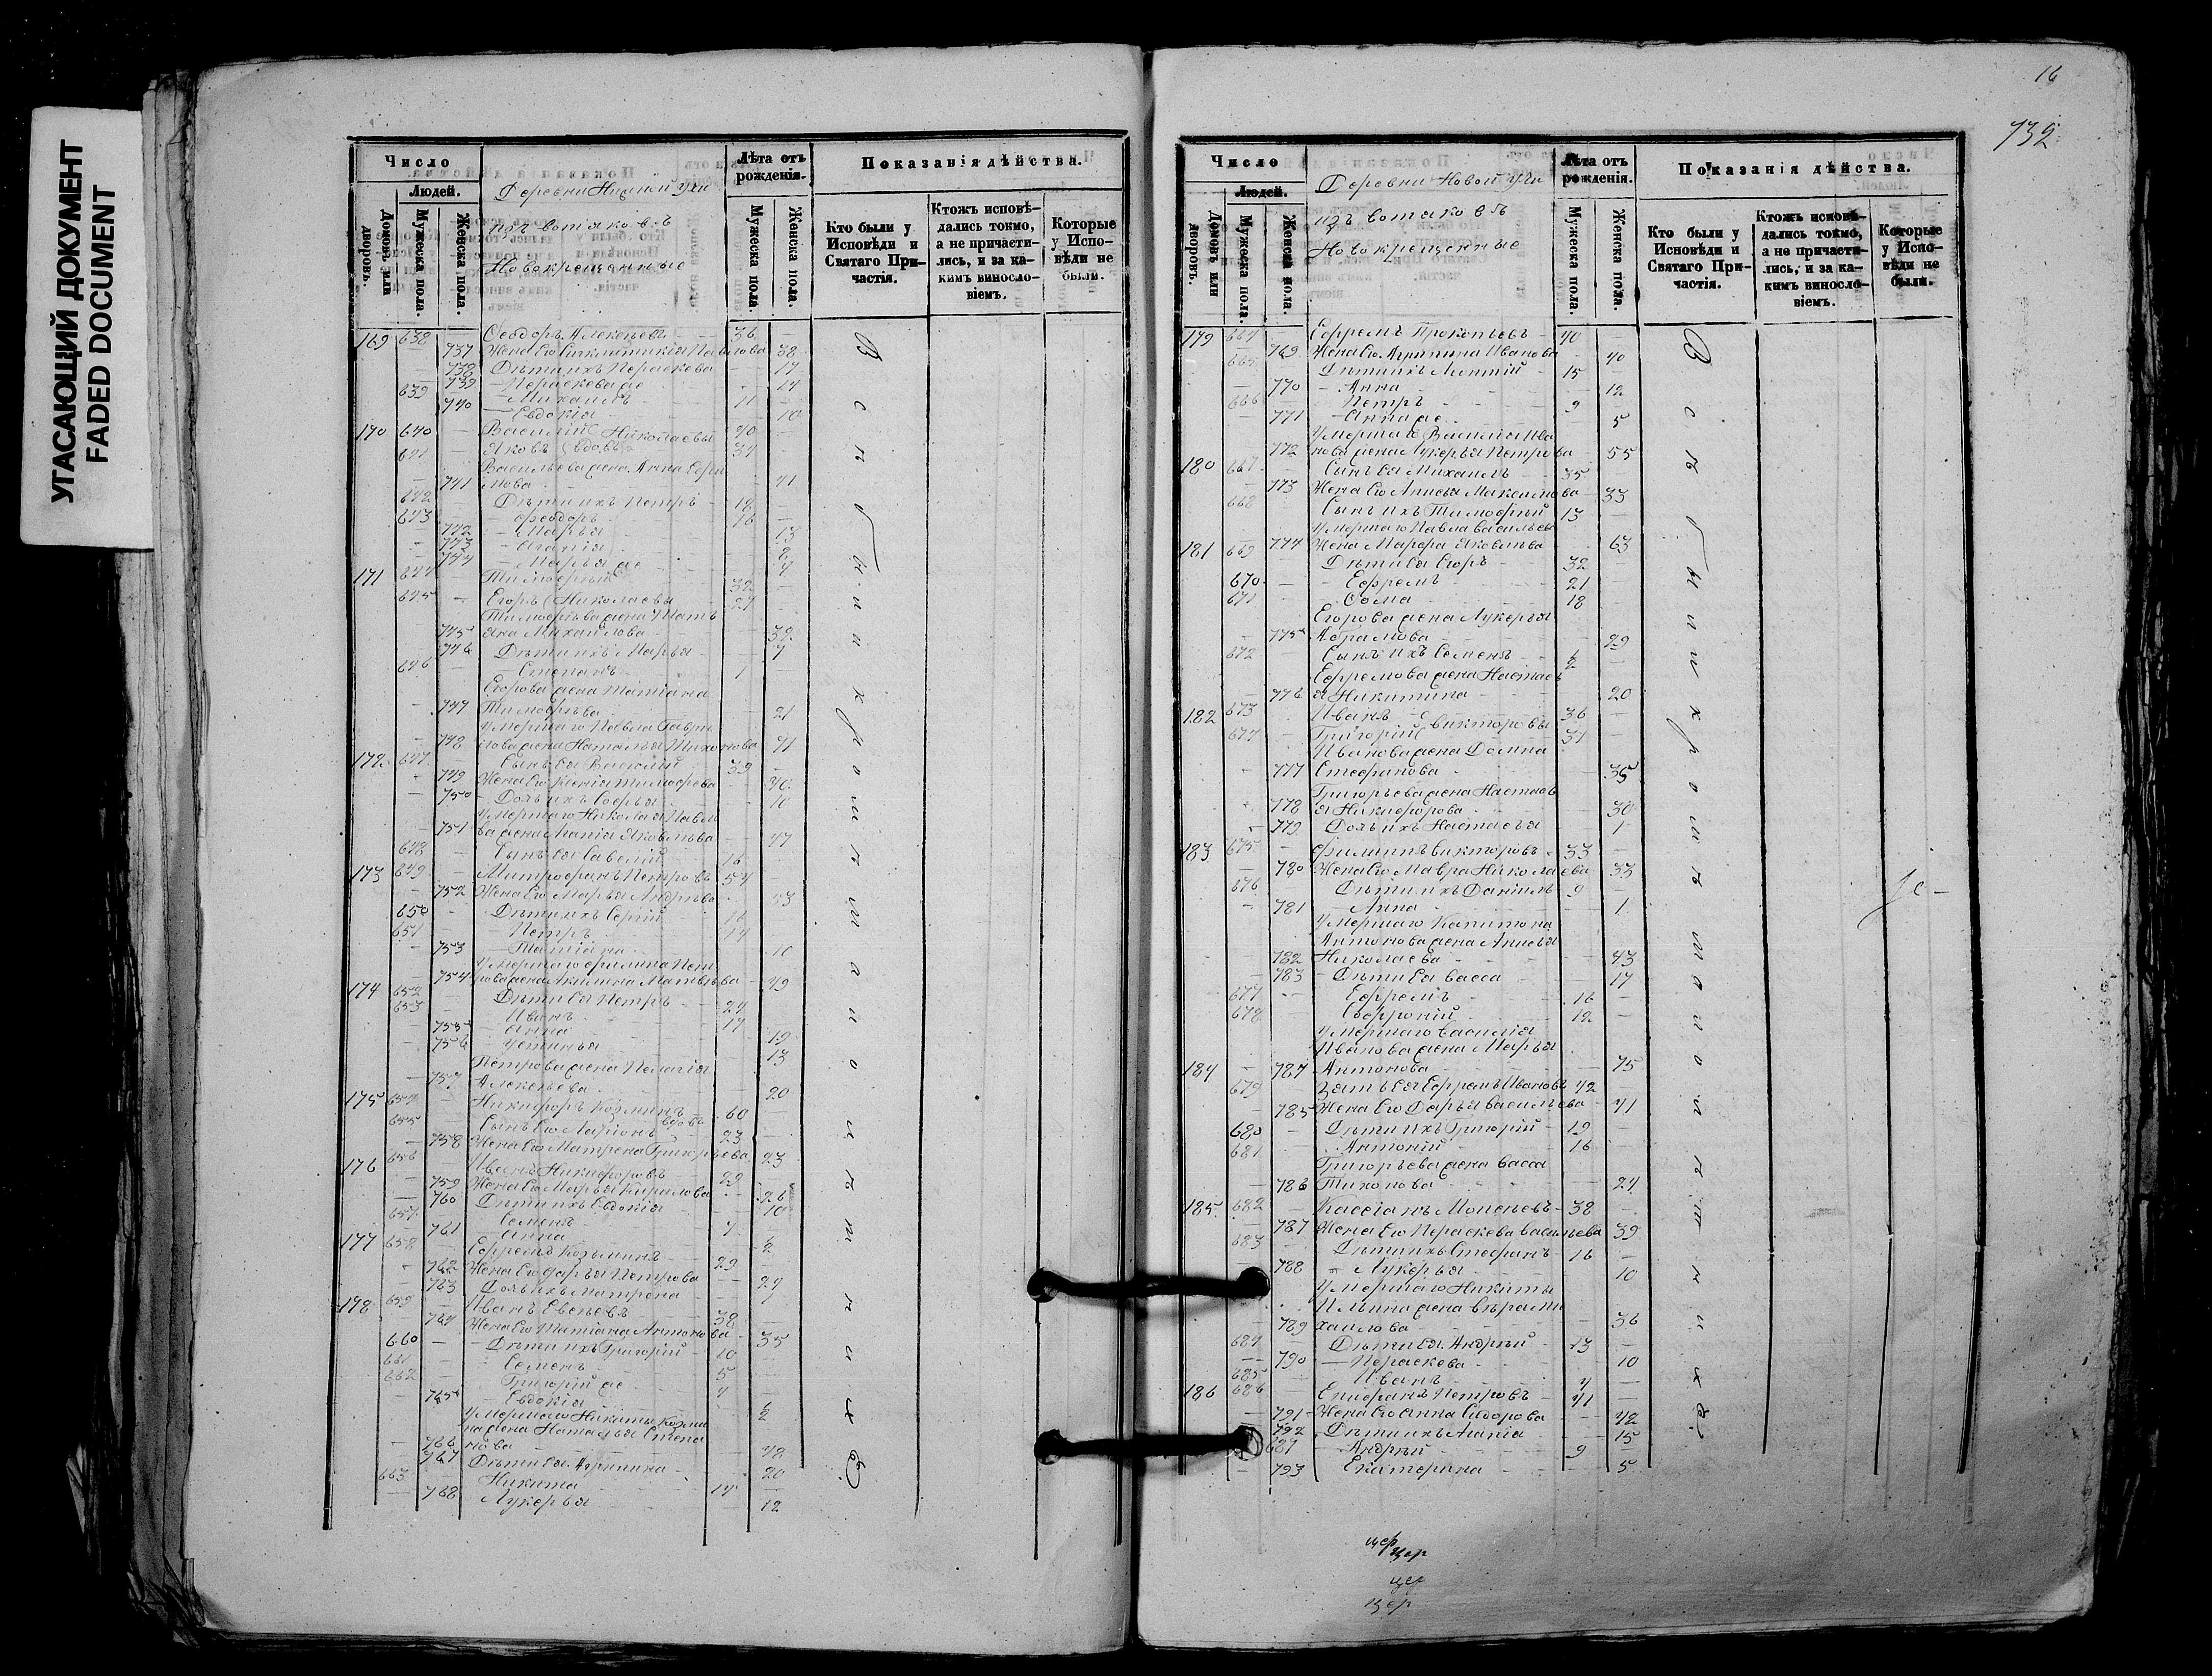 УГАСАЮЩИЙ ДОКУМЕНТ
FADED DOCUMENT
Число
Людей.
Домовъ или дворовъ.
Мужеска пола.
Женска пола.
Деревни Нижней Учи
изъ вотяковъ
Новокрещенные
Лѣта отъ рожденія.
Мужеска пола.
Женска пола.
Показанія дѣйства.
Кто были у Исповѣди и Святаго Причастія.
Ктожъ исповѣдались токмо, а не причастились, и за какимъ винословіемъ.
Которые у Исповѣди не были.
169 638 — Ѳеодоръ Алексѣевъ — 36 —
737 Жена Его Синклитикія Павлова 38
738 Дѣти ихъ Параскева — 17
739 — Параскева же — 14
639 — Михаилъ — 11 —
740 — Евдокія — 10
170 640 — Василій Николаевы 40
641 — Яковъ вдовъ 37
Васильева жена Анна Ефри
741 мова — 41
642 Дѣти ихъ Петръ — 18
643 — Ѳеодоръ — 16 —
742 — Марья — 13
743 — Агапія — 8
744 — Марья же — 4
171 644 — Тимоѳей 32
645 — Егоръ Николаевы 27
Тимоѳеева жена Тать
745 яна Михайлова — 32
746 Дѣти ихъ Марья — 7
646 — Степанъ — 1
Егорова жена Татіана
747 Тимоѳеева — 21
748 лова жена Наталья Тихонова 71
172 647 — Сынъ Ея Василій 39 —
749 Жена Его Ксенія Тимоѳеева 40
750 — Дочь ихъ Софья — 10
Умершаго Николая Павло
751 ва жена Агапія Яковлева 47
648 — Сынъ Ея Савелій 16 —
173 649 — Митрофанъ Петровъ 54
752 Жена Его Марья Андреева 53
650 — Дѣти ихъ Сергій — 16
651 — Петръ — 14 —
753 — Татіана — 10
Умершаго Филипа Пет
754 рова жена Акилина Матвѣева — 49
174 652 — Дѣти Ея Петръ — 24
653 — Иванъ — 17
755 — Анна — 19
756 — Устинья — 13
Петрова жена Пелагія
757 Алексѣева — 20
175 654 — Никифоръ Козминъ вдовъ 60 —
655 — Сынъ Его Ларіонъ — 23 —
758 Жена Его Матрена Григорьева 23
176 656 — Иванъ Никифоровъ 29
759 Жена Его Марья Кирилова — 26
760 Дѣти ихъ Евдокія — 10
657 — Семенъ — 7
761 — Анна — ½
177 658 — Ефремъ Козьминъ 29
762 Жена Его Дарья Петрова — 27
763 — Дочь ихъ Матрена — 7
178 659 — Иванъ Евсѣевъ — 38
764 Жена Его Татіана Антонова — 35
660 — Дѣти ихъ Григорій — 10
661 — Семенъ — 5
662 — Григорій же — 4
765 — Евдокія — ½
Умершаго Никиты Козми
на жена Наталья Степа
766 нова — 48
767 Дѣти Ея Агрипина — 20
663 — Никита — 14 —
768 Лукерья — 12
Всѣ были какъ
16
732
Число
Людей.
Домовъ или дворовъ.
Мужеска пола.
Женска пола.
Деревни Новой Учи
изъ вотяковъ
Новокрещенные
Лѣта отъ рожденія.
Мужеска пола.
Женска пола.
Показанія дѣйства.
Кто были у Исповѣди и Святаго Причастія.
Ктожъ исповѣдались токмо, а не причастились, и за какимъ винословіемъ.
Которые у Исповѣди не были.
179 664 — Ефремъ Прокопьевъ — 40 —
769 Жена Его Агрипина Иванова 40
665 Дѣти ихъ Леонтій — 15 —
770 — Анна — 12
666 — Петръ — 9
771 — Анна же — 5
Умершаго Василья Ива
772 нова жена Лукерья Петрова 55
180 667 — Сынъ Ея Михаилъ — 35
773 Жена Его Анисья Максимова 33
668 Сынъ ихъ Тимоѳей 13
Умершаго Павла Васильева
181 774 Жена Марфа Яковлева — 63
669 Дѣти Ея Егоръ — 32
670 — Ефремъ — 21
671 — Ѳома — 18
Егорова жена Лукерья
775 Абрамова — 29
672 — Сынъ ихъ Семенъ — ½
Ефремова жена Настась
776 я Никитина — 20
182 673 Иванъ Викторовы 36
674 Григорій 31
Иванова жена Домна
777 Стефанова — 35
Григорьева жена Настась
778 я Никифорова — 30
779 Дочь ихъ Настасья — 1
183 675 — Филиппъ Викторовъ 33
780 Жена Его Мавра Николаева 33
676 — Дѣти ихъ Даніилъ 9
781 — Анна — 1
Умершаго Капитона
Антонова жена Анисья
782 Николаева — 43
783 — Дѣти Ея Васса — 17
677 — Ефремъ — 16
678 — Софроній — 12
Умершаго Василія
Иванова жена Марья
184 787 Антонова — 75
679 Зять Ея Ефремъ Ивановъ 42
785 Жена Его Дарья Васильева 41
680 — Дѣти ихъ Григорій — 19
681 — Антоній — 16
Григорьева жена Васса
786 Тихонова — 24
185 682 — Кассіанъ Моисеевъ 38
787 Жена Его Параскева Васильева 39
683 Дѣти ихъ Стефанъ — 16
788 — Лукерья — 10
Умершаго Никиты
Ильина жена Вѣра Ми
789 хайлова — 36
684 — Дѣти Ея Андрей — 13
790 — Параскева — 10
685 — Иванъ — 4
186 686 — Епифанъ Петровъ 41
791 Жена Его Анна Сидорова — 42
792 Дѣти ихъ Агапія — 15
687 — Андрей — 9
793 Екатерина — 5
цер цер
цер
цер